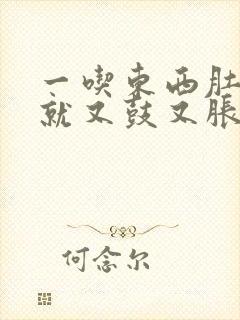 一喫東西肚
就又鼓又脹
何念尔